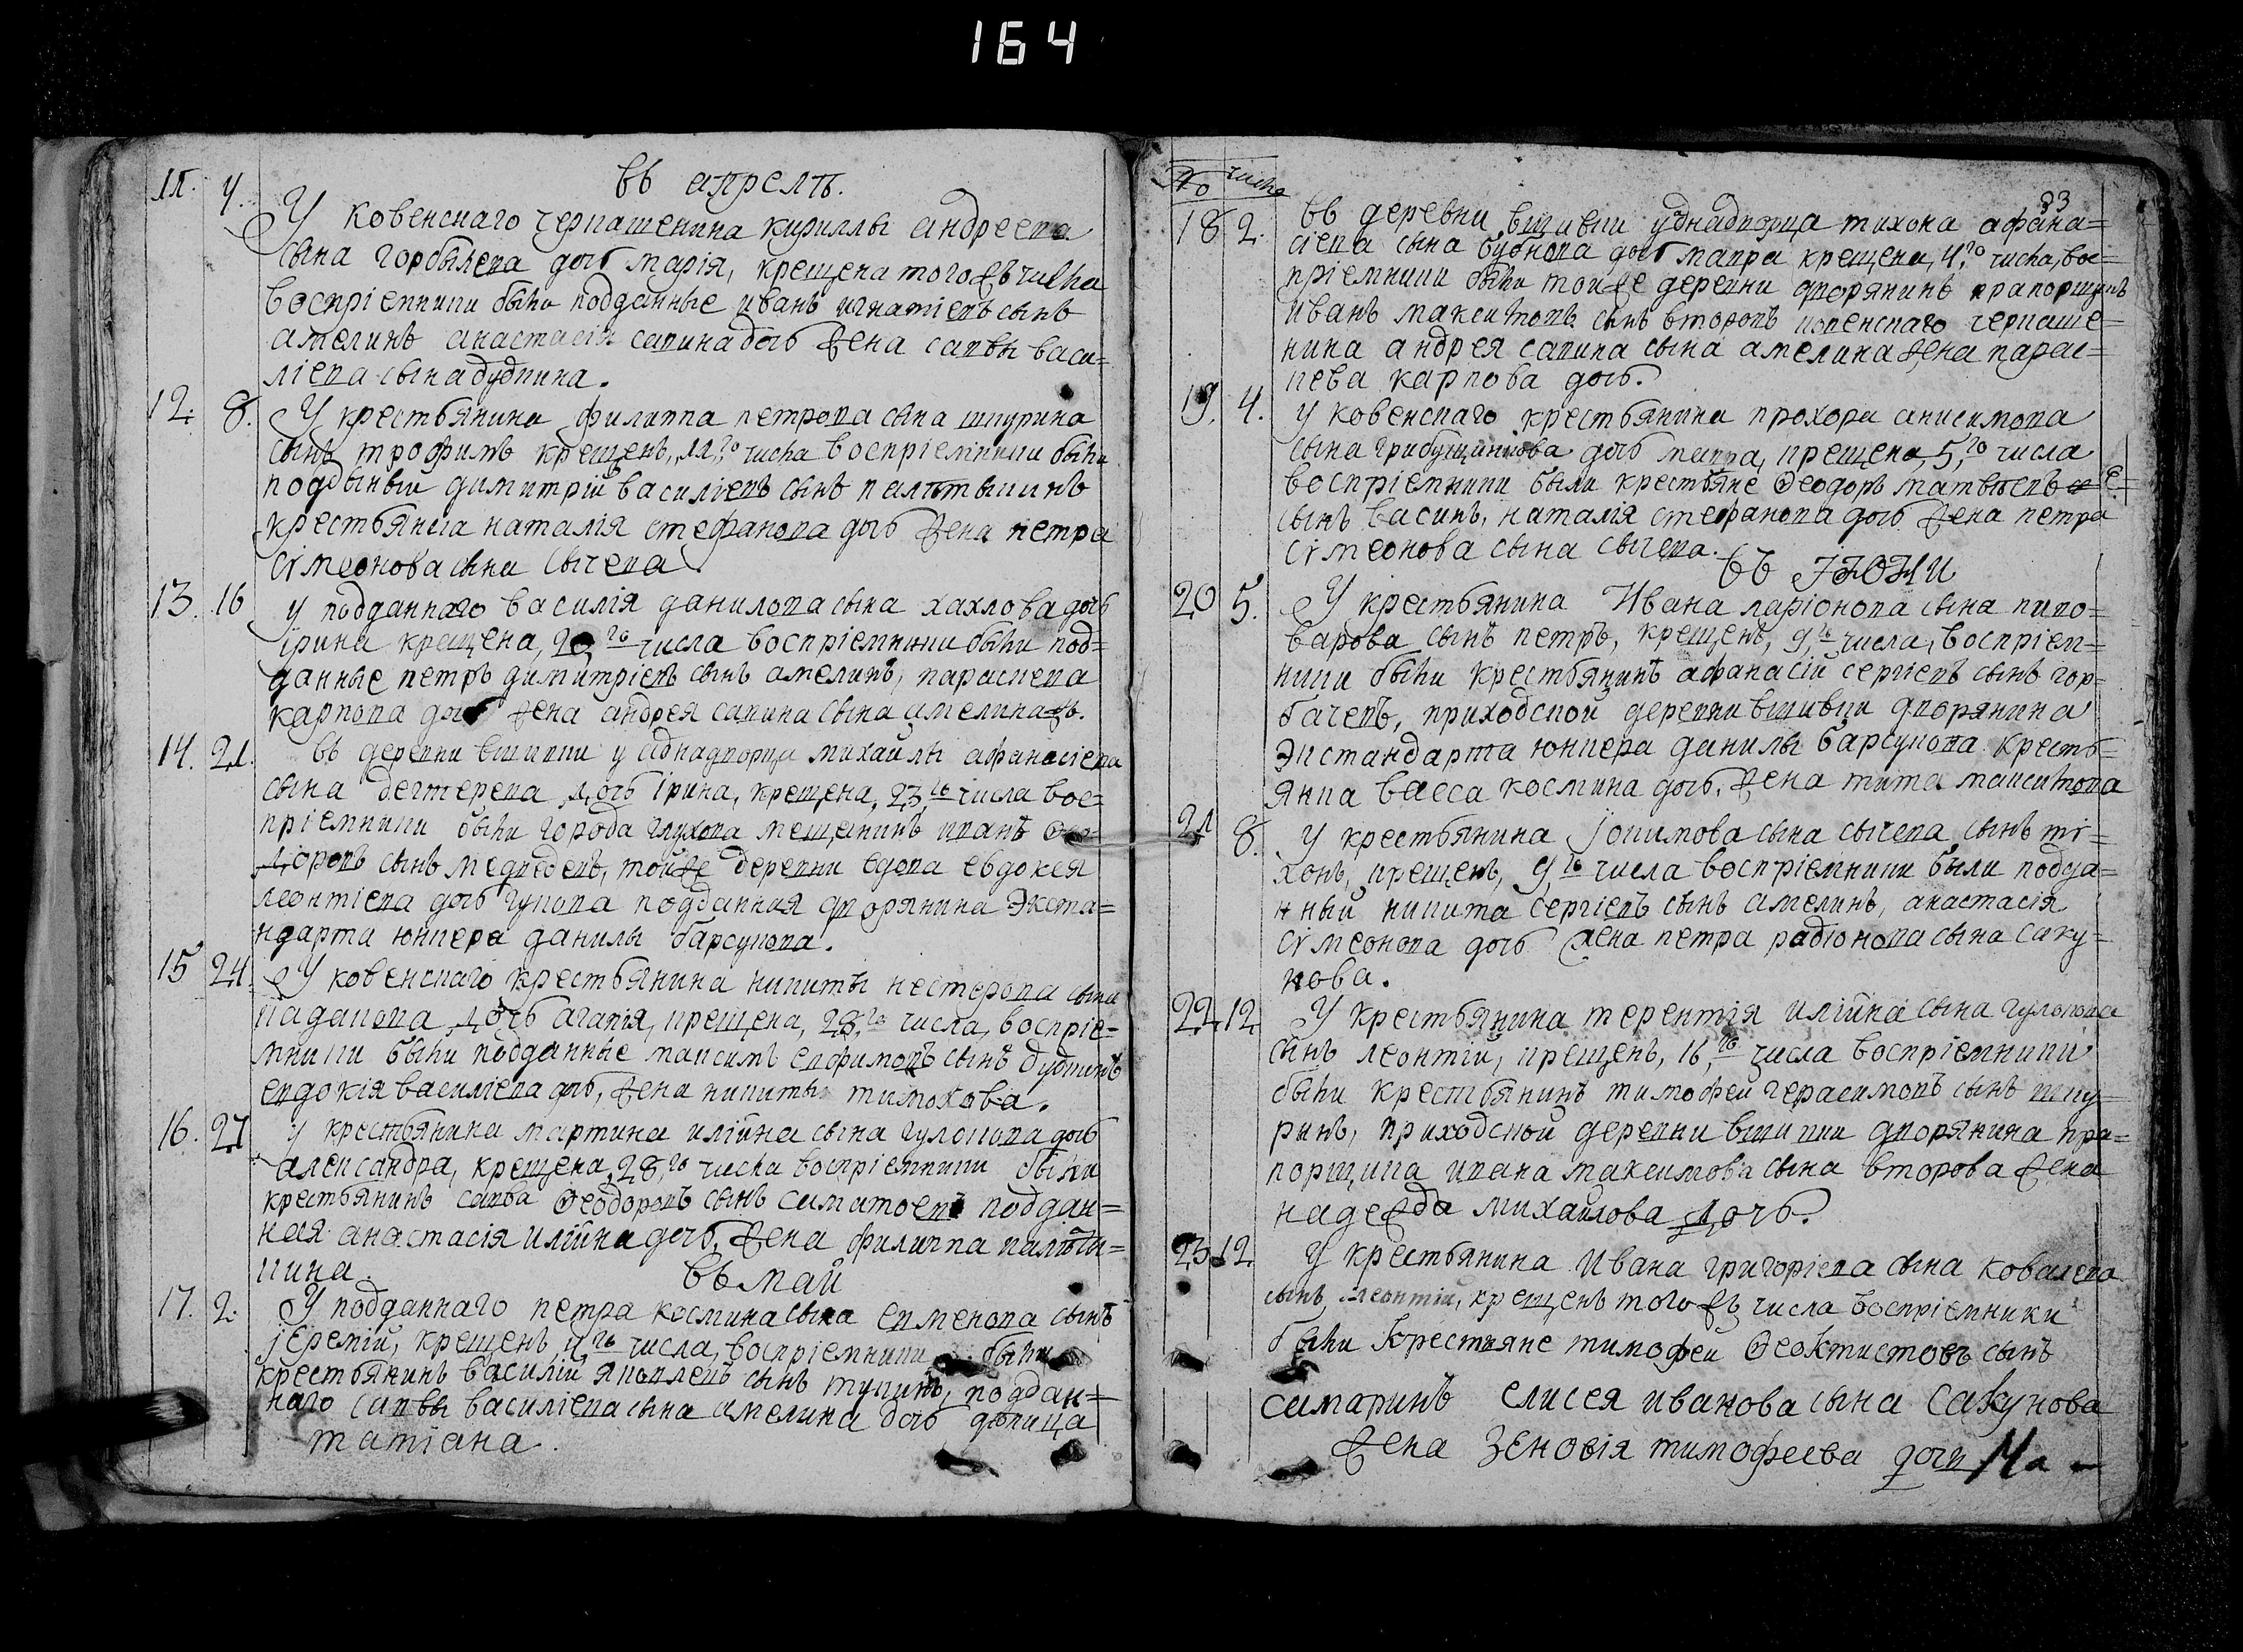 164
въ апрелѣ.
11. 4. У ковенскаго черкашенина кириллы андреева
сына горбылева дочь марія, крещена тогожъ числа
воспріемники были подданные иванъ игнатіевъ сынъ
амелинъ анастасія савина дочь жена саввы васи=
ліева сына дудкина.
12. 8. У крестьянина филиппа петрова сына шкурина
сынъ трофимъ крещенъ, 11,го числа воспріемники были
подданый димитрій василіевъ сынъ
крестьянка наталія стефанова дочь жена петра
сѵмеонова сына сычева
13. 16 у подданнаго василія данилова сына хахлова дочь
ірина крещена, 20 го числа воспріемники были под=
данные петръ димитріевъ сынъ амелинъ, параскева
карпова дочь жена андрея савина сына амелина жъ.
14. 21. въ деревни вшивки у аднадворца михайлы афанасіева
сына дегтерева дочь ірина, крещена, 23 го числа вос=
пріемники были города глухова мещанинъ иванъ
сынъ медведевъ, тойже деревни вдова евдокея
леонтіева дочь гукова подданная дворянина экста=
ндарта юнкера данилы барсукова.
15 24. У ковенскаго крестьянина никиты нестерова сына
кадакова дочь агапія, крещена, 28, го числа, воспріе=
мники были подданные максимъ евфимовъ сынъ дудкинъ
евдокія василіева дочь, жена никиты тимохова.
16. 27 у крестьянина мартина илійна сына гулокова дочь
александра, крещена, 28, го числа воспріемники были
крестьянинъ савва ѳеодоровъ сынъ поддан=
ная анастасія илійна дочь, жена филиппа
кина.
въ май
17. 2. У подданнаго петра космина сына евменова сынъ
іеремій, крещенъ, 4 го числа, воспріемники были
крестьянинъ василій яковлевъ сынъ тупинъ, поддан=
наго саввы василіева сына амелина дочь девица
татіана.
No числа
93
18 2. въ деревни вшивки уѣднадворца тихона афана=
сіева сына бубнова дочь мавра крещена, 4, го числа, вос=
пріемники были тойже деревни дворянинъ прапорщикъ
иванъ максимовъ сынъ второвъ ковенскаго черкаше=
нина андрея савина сына амелина жена парас=
кева карпова дочь.
19. 4. У ковенскаго крестьянина прохора анисимова
сына грибущинкова дочь мавра, крещена, 5, го числа
воспріемники были крестьяне ѳеодоръ матвѣевъ
сынъ васинъ, наталія стефанова дочь жена петра
сѵмеонова сына сычева.
въ Іюни
20 5. У крестьянина Ивана ларіонова сына пиво=
варова сынъ петръ, крещенъ, 9, го числа, воспріем=
ники были крестьянинъ афанасій сергіевъ сынъ гор=
бачевъ, приходской деревни вшивки дворянина
экстандарта юнкера данилы барсукова кресть=
янка васса космина дочь, жена тита максимова
21 8. У крестьянина іокимова сына сычева, сынъ ти=
хонъ, крещенъ, 9, го числа воспріемники были подда=
нный никита сергіевъ сынъ амелинъ, анастасія
сѵмеонова дочь жена петра радіонова сына саку=
нова.
22. 12. У крестьянина терентія илійна сына гулокова
сынъ леонтій, крещенъ, 16, го числа воспріемники
были крестьянинъ тимофей герасимовъ сынъ шку=
ринъ, приходской деревни вшивки дворянина пра=
порщика ивана максимова сына второва жена
надежда михайлова дочь.
23. 12. У крестьянина Ивана григоріева сына ковалева
сынъ леонтій, крещенъ тогожъ числа воспріемники
были крестьяне тимофей ѳеоктистовъ сынъ
самаринъ елисея иванова сына сакунова
жена зеновія тимофеева дочь